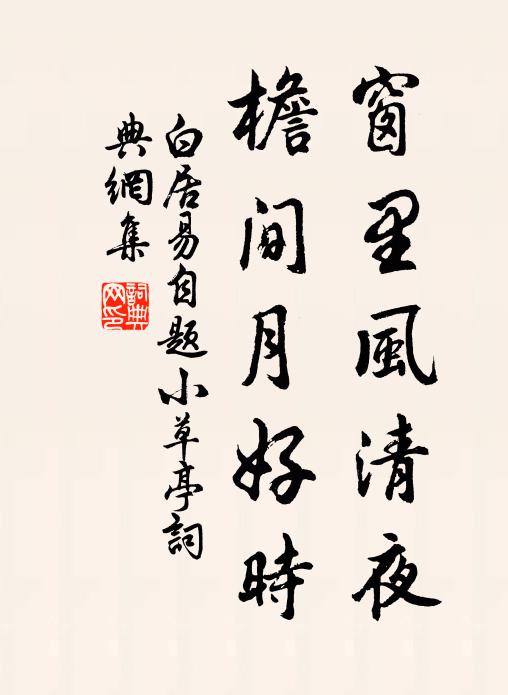 窗里風清夜
檐間月好時
白居易自题小草亭詞
典網集
詞典
网印